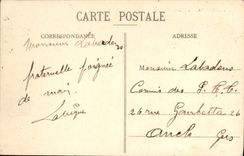 CARTE POSTALE
CORRESPONDANCE
ADRESSE
Monsieur Labadens
fraternelle poignée
de main
Monsieur Labadens
Commis des P.T.T
26 rue Gambetta 26
Auch
Gers